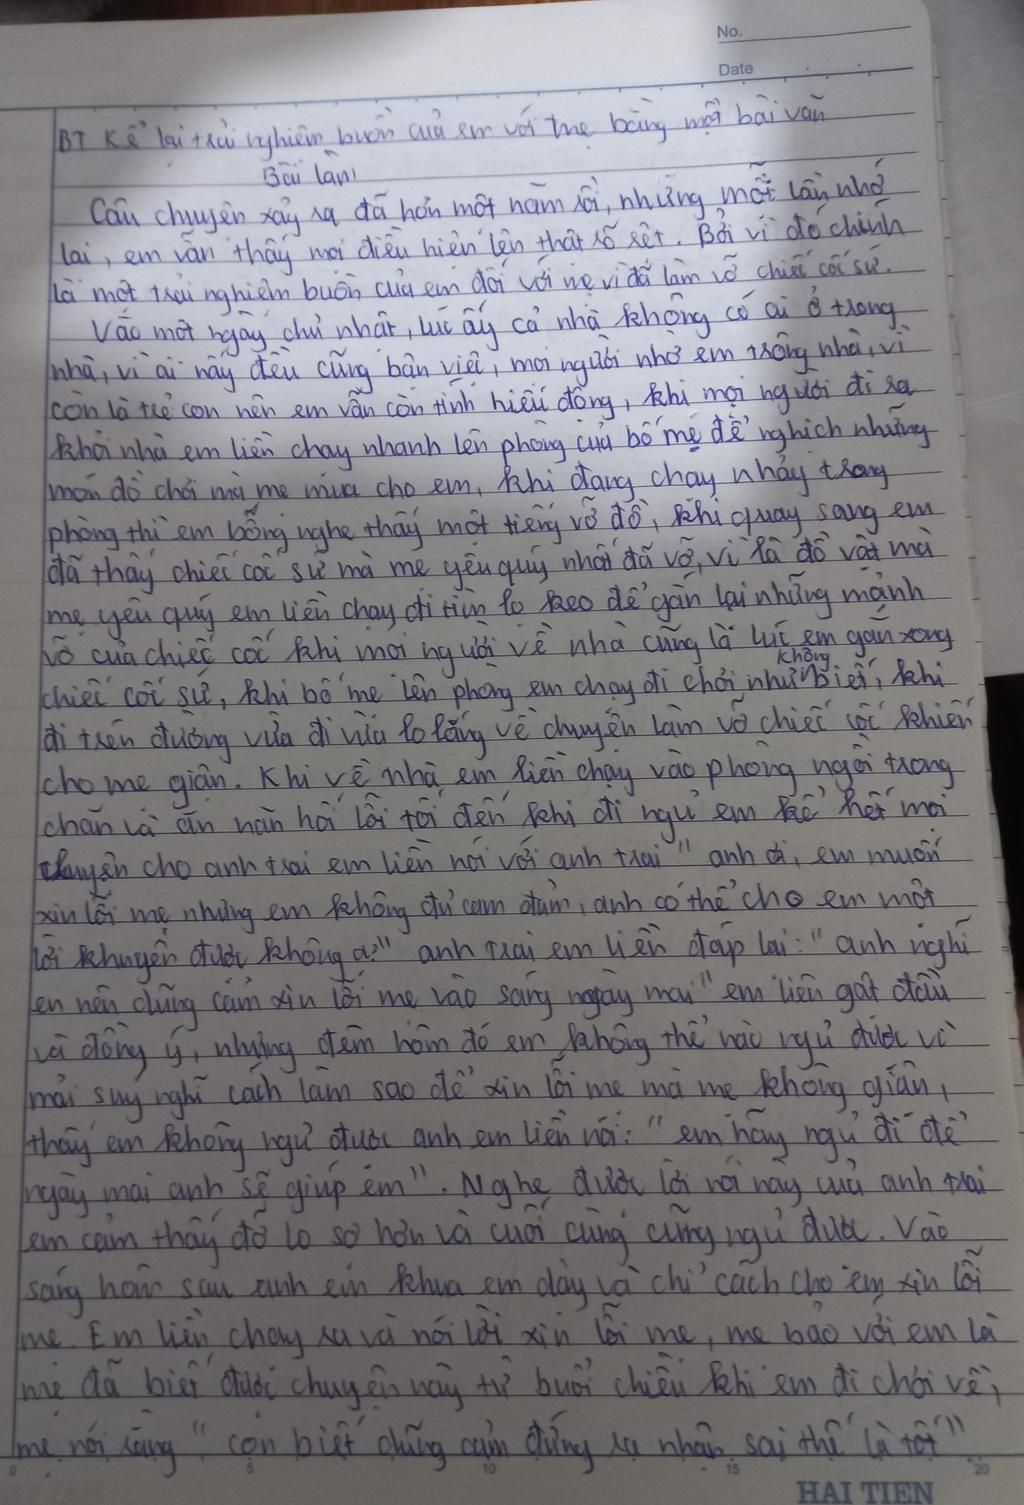 No.
Date
BT Kể lại trải nghiệm buồn của em với mẹ bằng một bài văn
Bài làm
Câu chuyện xảy ra đã hơn một năm rồi, nhưng mỗi lần nhớ
lại, em vẫn thấy mọi điều hiện lên thật rõ rệt. Bởi vì đó chính
là một trải nghiệm buồn của em đối với mẹ vì đã làm vỡ chiếc cốc sứ.
Vào một ngày chủ nhật, lúc ấy cả nhà không có ai ở trong
nhà, vì ai nấy đều cũng bận việc, mọi người nhờ em trông nhà, vì
còn là trẻ con nên em vẫn còn tính hiếu động, khi mọi người đi ra
khỏi nhà em liền chạy nhanh lên phòng của bố mẹ để nghịch những
món đồ chơi mà mẹ mua cho em, khi đang chạy nhảy trong
phòng thì em bỗng nghe thấy một tiếng vỡ đồ, khi quay sang em
đã thấy chiếc cốc sứ mà mẹ yêu quý nhất đã vỡ, vì là đồ vật mà
mẹ yêu quý em liền chạy đi tìm lọ keo để gắn lại những mảnh
vỡ của chiếc cốc khi mọi người về nhà cũng là lúc em gắn xong
chiếc cốc sứ, khi bố mẹ lên phòng em chạy đi chơi như không biết, khi
đi trên đường vừa đi vừa lo lắng về chuyện làm vỡ chiếc cốc khiến
cho mẹ giận. Khi về nhà em liền chạy vào phòng ngồi trong
chăn và ăn năn hối lỗi tối đến khi đi ngủ em kể hết mọi
chuyện cho anh trai em liền nói với anh trai " anh ơi, em muốn
xin lỗi mẹ nhưng em không đủ can đảm, anh có thể cho em một
lời khuyên được không ạ?" anh trai em liền đáp lại: " anh nghĩ
em nên dũng cảm xin lỗi mẹ vào sáng ngày mai" em liền gật đầu
và đồng ý, nhưng đêm hôm đó em không thể nào ngủ được vì
mải suy nghĩ cách làm sao để xin lỗi mẹ mà mẹ không giận,
thấy em không ngủ được anh em liền nói: " em hãy ngủ đi để
ngày mai anh sẽ giúp em". Nghe được lời nói này của anh trai
em cảm thấy đỡ lo sợ hơn và cuối cùng cũng ngủ được. Vào
sáng hôm sau anh em khua em dậy và chỉ cách cho em xin lỗi
mẹ. Em liền chạy ra và nói lời xin lỗi mẹ, mẹ bảo với em là
mẹ đã biết được chuyện này từ buổi chiều khi em đi chơi về,
mẹ nói rằng " con biết dũng cảm đứng ra nhận sai thế là tốt"
0 5 10 15 20
HAI TIEN